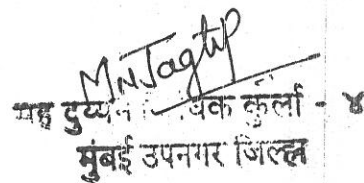 MNJagtap
सह दुय्यम निबंधक कुर्ला - ४
मुंबई उपनगर जिल्हा